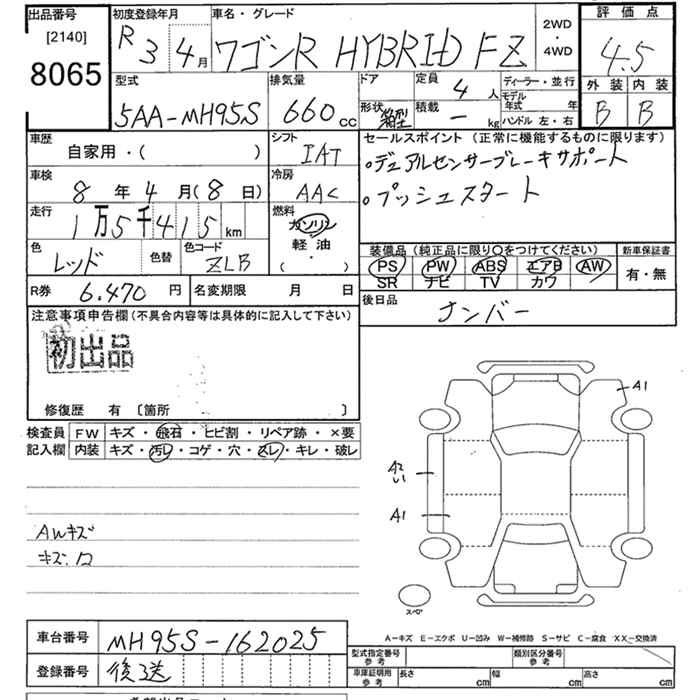 出品番号
[2140]
8065
初度登録年月
R 3 4月
車名・グレード
ワゴンR HYBRID FZ
2WD
・
4WD
評価点
4.5
外装 内装
B B
型式
5AA-MH95S
排気量
660cc
ドア
形状 箱型
定員 4人
積載 - kg
ディーラー・並行
モデル
年式 年
ハンドル 左・右
車歴
自家用・( )
シフト
IAT
セールスポイント (正常に機能するものに限ります)
・デュアルセンサーブレーキサポート
・プッシュスタート
車検
8年4月(8日)
冷房
AAC
走行
1万5千415km
燃料
ガソリン
軽油
( ・ )
色
レッド
色替
色コード
ZLB
装備品 (純正品に限り○をつけてください)
PS PW ABS エアB AW
SR ナビ TV カワ
新車保証書
有・無
R券 6.470円
名変期限 月 日
後日品
ナンバー
注意事項申告欄(不具合内容等は具体的に記入して下さい)
初出品
修復歴 有 〔箇所 〕
検査員
記入欄
FW キズ・飛石・ヒビ割・リペア跡・×要
内装 キズ・汚レ・コゲ・穴・スレ・キレ・破レ
AWキズ
キズ.ロ
A1
A2
A1
スペア
A-キズ E-エクボ U-凹み W-補修跡 S-サビ C-腐食 XX-交換済
車台番号 MH95S-162025
登録番号 後送
型式指定番号
参考
類別区分番号
参考
車庫証明用
参考
長さ cm 幅 cm 高さ cm